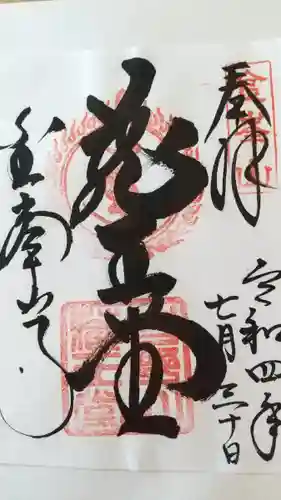 奉拝
令和四年
七月三十日
蔵王堂
金峯山寺